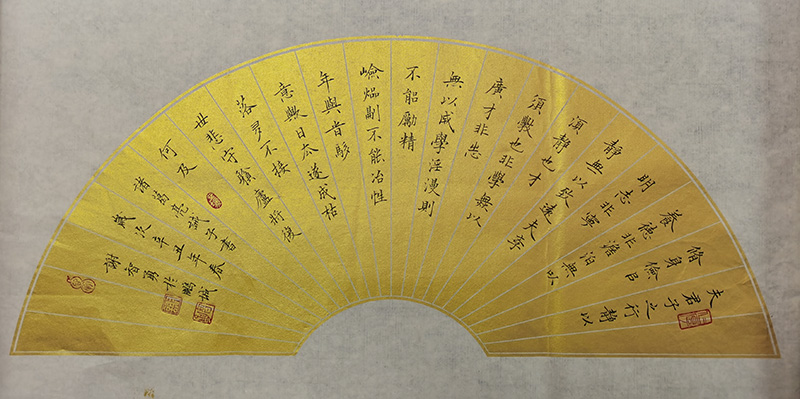 夫君子之行靜以
脩身儉㠯
養德非澹泊無以
明志非寧
靜無以致遠夫學
須靜也才
須學也非學無以
廣才非志
無以成學淫漫則
不能勵精
險躁則不能冶性
年與時馳
意與日去遂成枯
落多不接
世悲守窮廬將復
何及
諸葛亮誡子書
歲次辛丑年春
謝智勇於鵬城